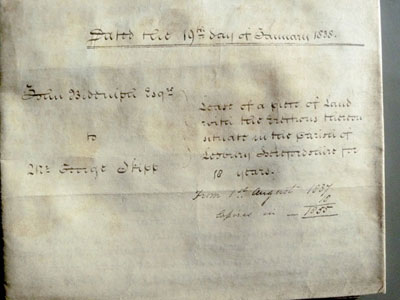 Dated the 19th day of January 1838.
John Biddulph Esqre
to
Mr. George Skipp
Lease of a piece of Land
with the Erections thereon
situate in the Parish of
Ledbury Herefordshire for
18 years.
From 1st August 1837
18
Expires in - 1855